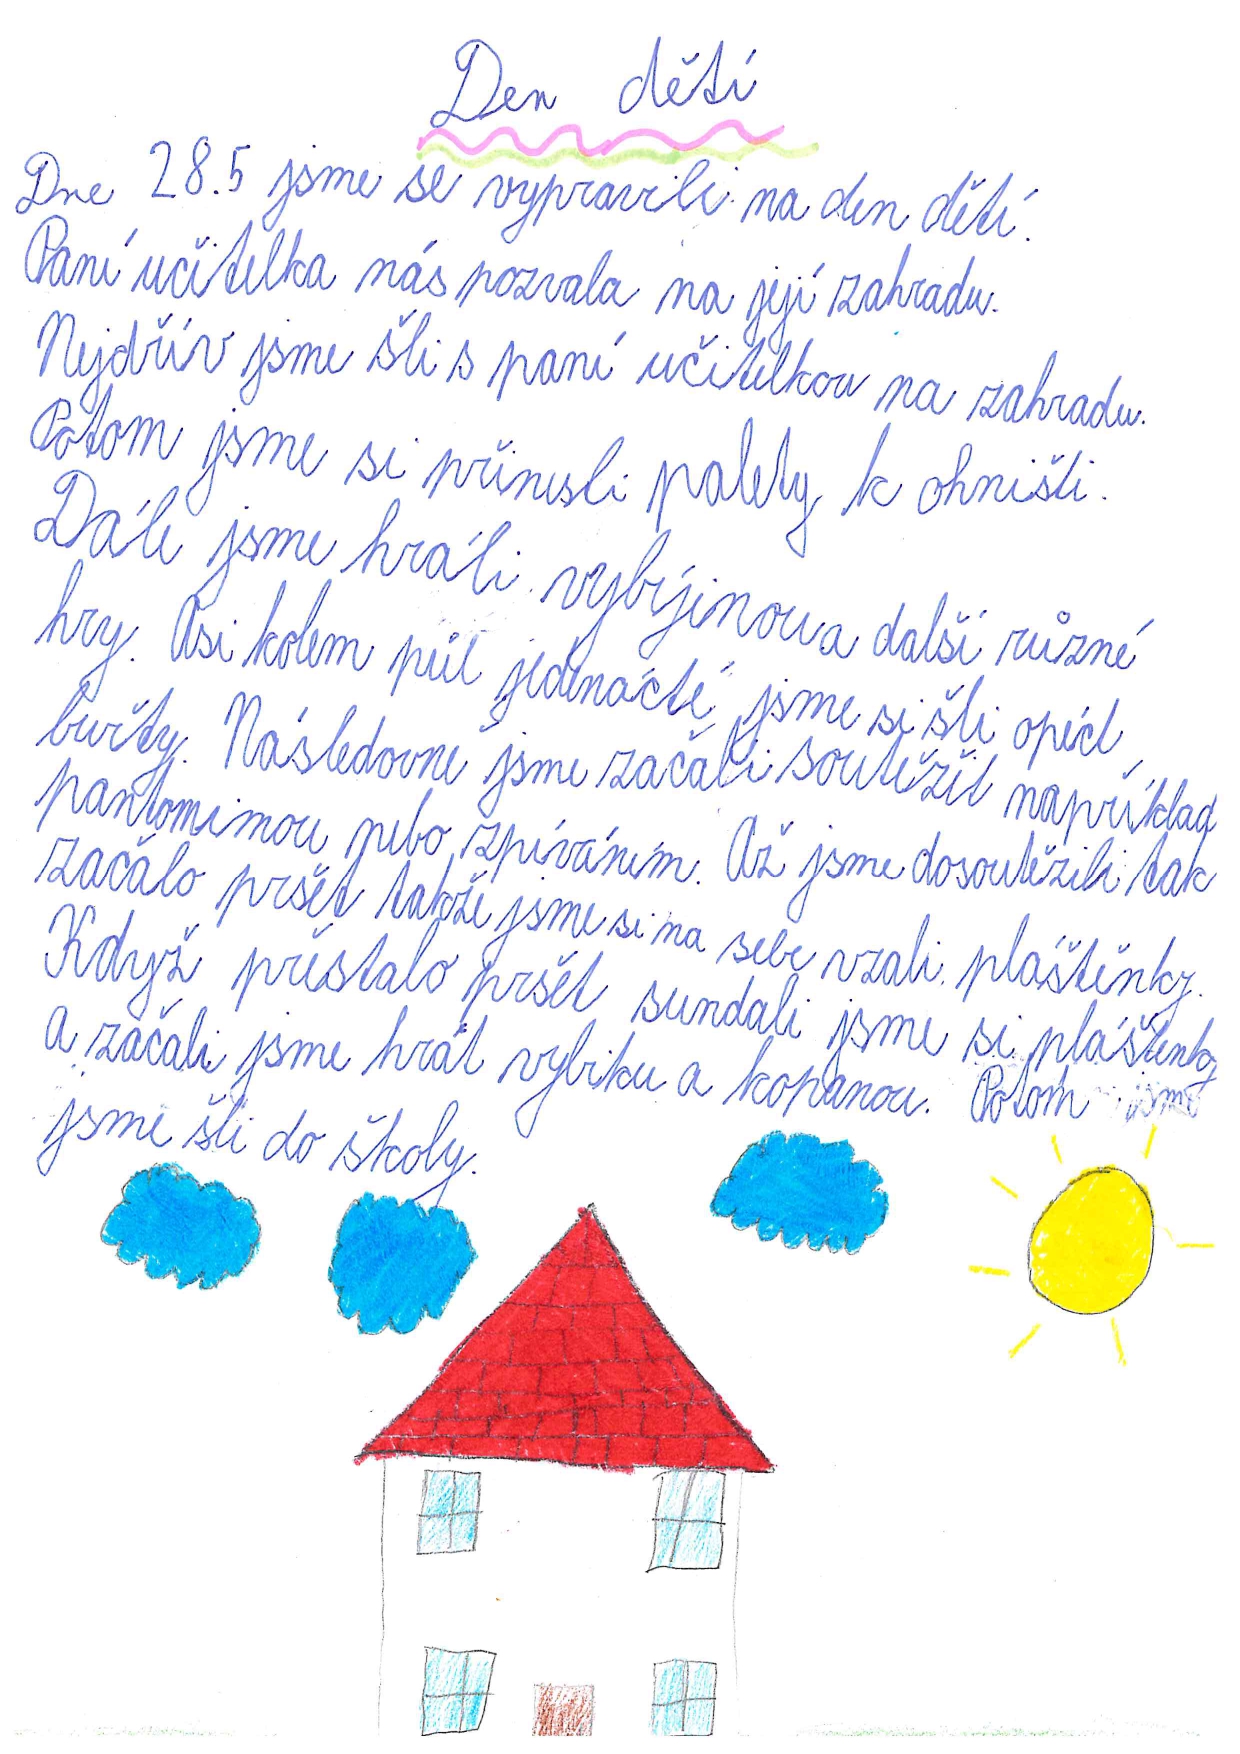 Den dětí
Dne 28.5 jsme se vypravili na den dětí.
Paní učitelka nás pozvala na její zahradu.
Nejdřív jsme šli s paní učitelkou na zahradu.
Potom jsme si přinesli palety k ohništi.
Dále jsme hráli vybíjenou a další různé
hry. Asi kolem půl jedenácté jsme si šli opéct
buřty. Následovně jsme začali soutěžit například
pantomimou nebo zpíváním. Až jsme dosoutěžili tak
začalo pršet takže jsme si na sebe vzali pláštěnky.
Když přestalo pršet sundali jsme si pláštenky
a začali jsme hrát vybiku a kopanou. Potom jsme
jsme šli do školy.